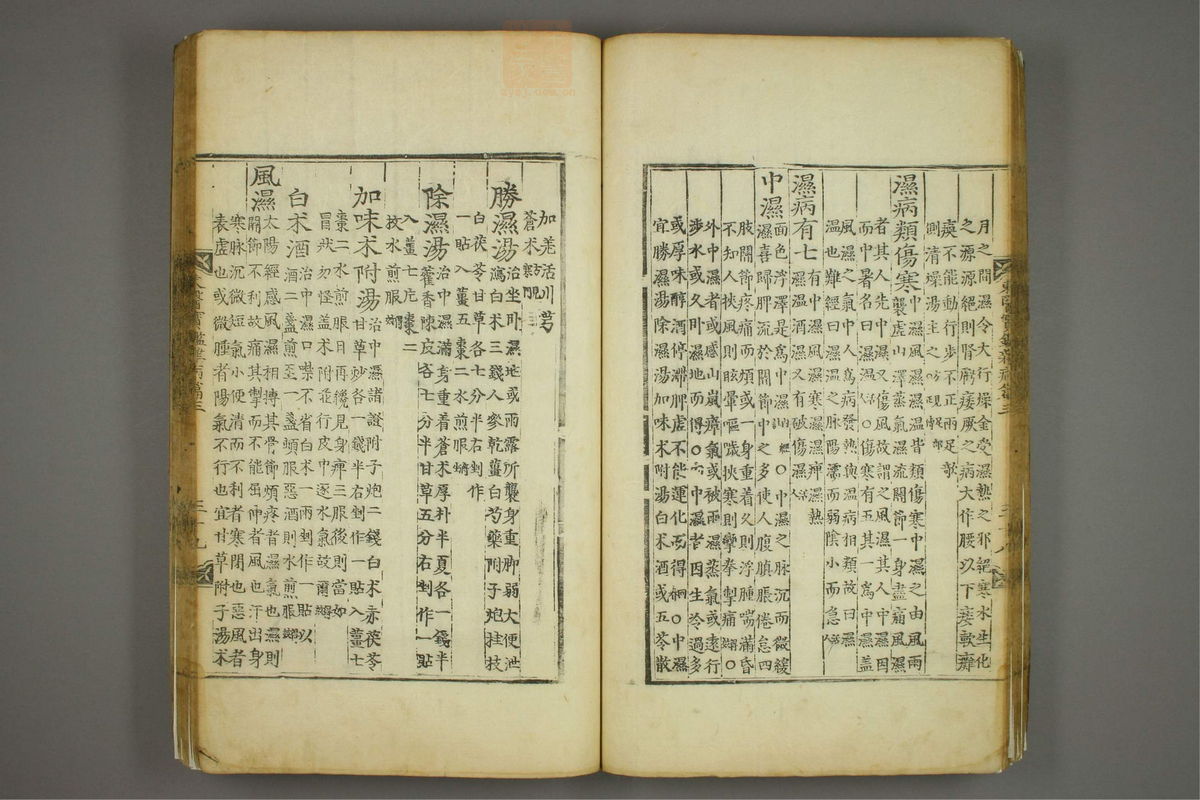 月之間濕令大行燥金受濕熱之邪絕寒水生化
之源源絕則腎虧痿厥之病大作腰以下痿軟癱
瘓不能動行步不正兩足欹
則清燥湯主之方見足部
濕病類傷寒
中濕風濕濕溫皆類傷寒中濕之由風雨
襲虛山澤蒸氣濕流關節一身盡痛風濕
者其人先中濕又傷風故謂之風濕其人中濕因
而中暑名曰濕溫○傷寒有五其一爲中濕盖
風濕之氣中人爲病發熱與溫病相類故曰濕
溫也難經曰濕溫之脉陽濡而弱陰小而急
濕病有七
有中濕風濕寒濕濕痺濕熱
濕溫酒濕又有破傷濕
中濕
面色浮澤是爲中濕內經○中濕之脉沉而微緩
濕喜歸脾流於關節中之多使人腹䐜脹倦怠四
肢關節疼痛而煩或一身重着久則浮腫喘滿昏
不知人挾風則眩暈嘔噦挾寒則攣拳掣痛○
外中濕者或感山嵐瘴氣或被雨濕蒸氣或遠行
涉水或久臥濕地而得○內中濕者因生冷過多
或厚味醇酒停滯脾虛不能運化而得○中濕
宜勝濕湯除濕湯加味朮附湯白朮酒或五苓散
加羌活川芎
蒼朮方見
勝濕湯
治坐臥濕地或雨露所襲身重脚弱大便泄
瀉白朮三錢人參乾薑白芍藥附子炮桂枝
白茯苓甘草各七分半右剉作
一貼入薑五棗二水煎服
除濕湯
治中濕滿身重着蒼朮厚朴半夏各一錢半
藿香陳皮各七分半甘草五分右剉作一貼
入薑七片棗二
枚水煎服
加味朮附湯
治中濕諸證附子炮二錢白朮赤茯苓
甘草炒各一錢半右剉作一貼入薑七
棗二水煎服日再纔見身痺三服後則當如
冒狀勿怪盖朮附並行皮中逐水氣故爾
白朮酒
治中濕口噤不省白朮一兩剉作一貼以
酒二盞煎至一盞頓服惡酒則水煎服
風濕
太陽經感風濕相搏其骨節煩疼者濕氣也濕則
關節不利故痛其掣而不能屈伸者風也汗出身
寒脉沉微短氣小便清而不利者寒閉也惡風者
表虛也或微腫者陽氣不行也宜甘草附子湯朮